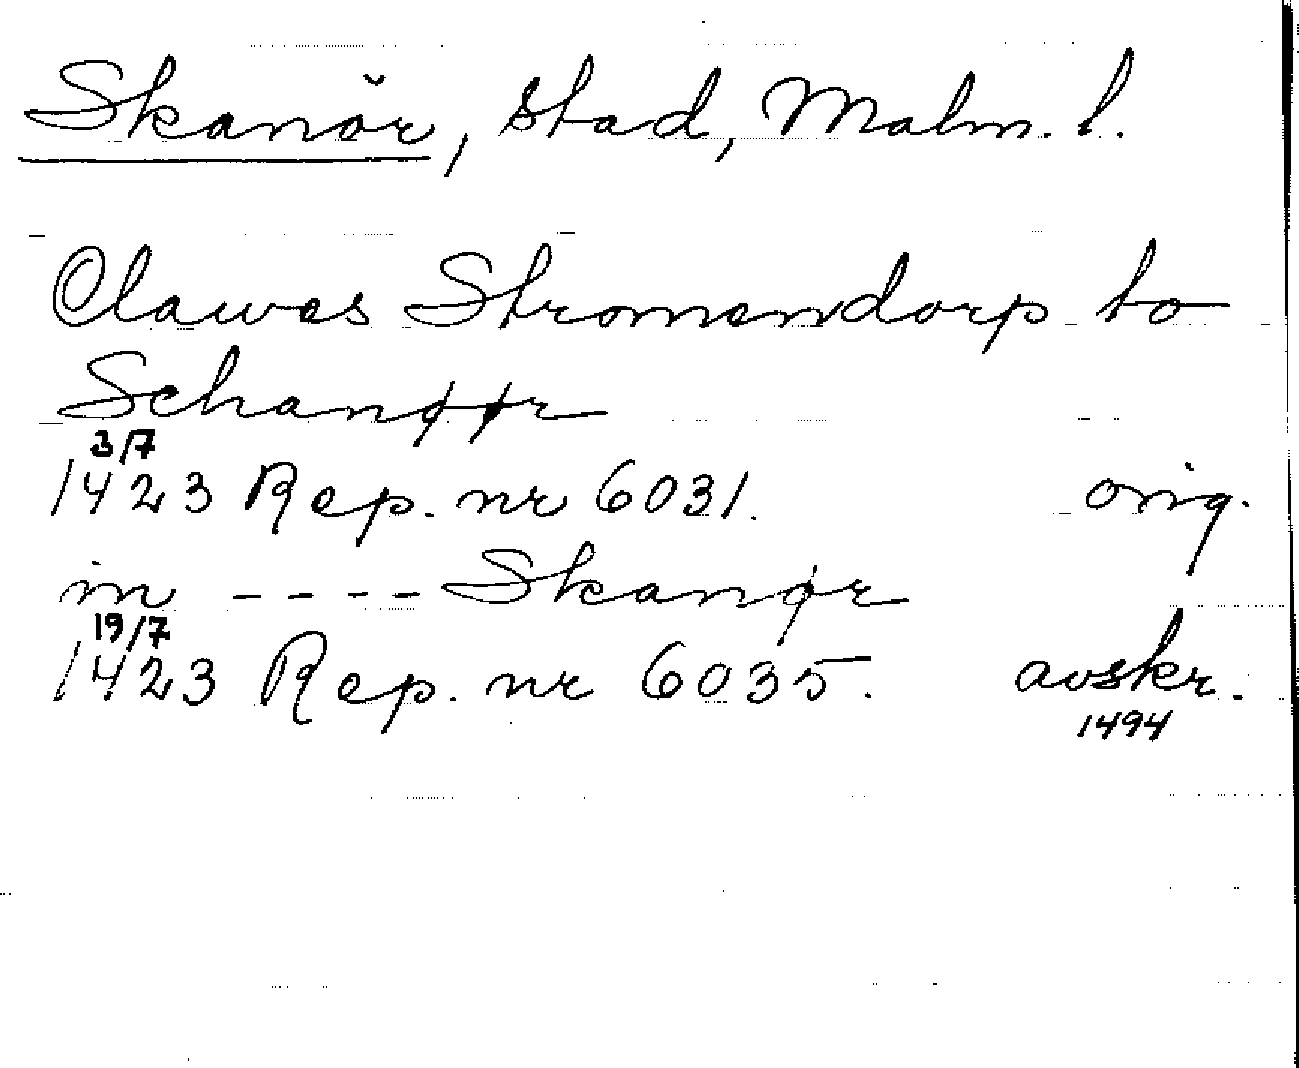 Skanör, stad, Malm. l.
Clawes Stromendorp to
Schanøør
3/7
1423 Rep. nr 6031. orig.
in - - - - Skanør
19/7
1423 Rep. nr 6035. avskr.
1494